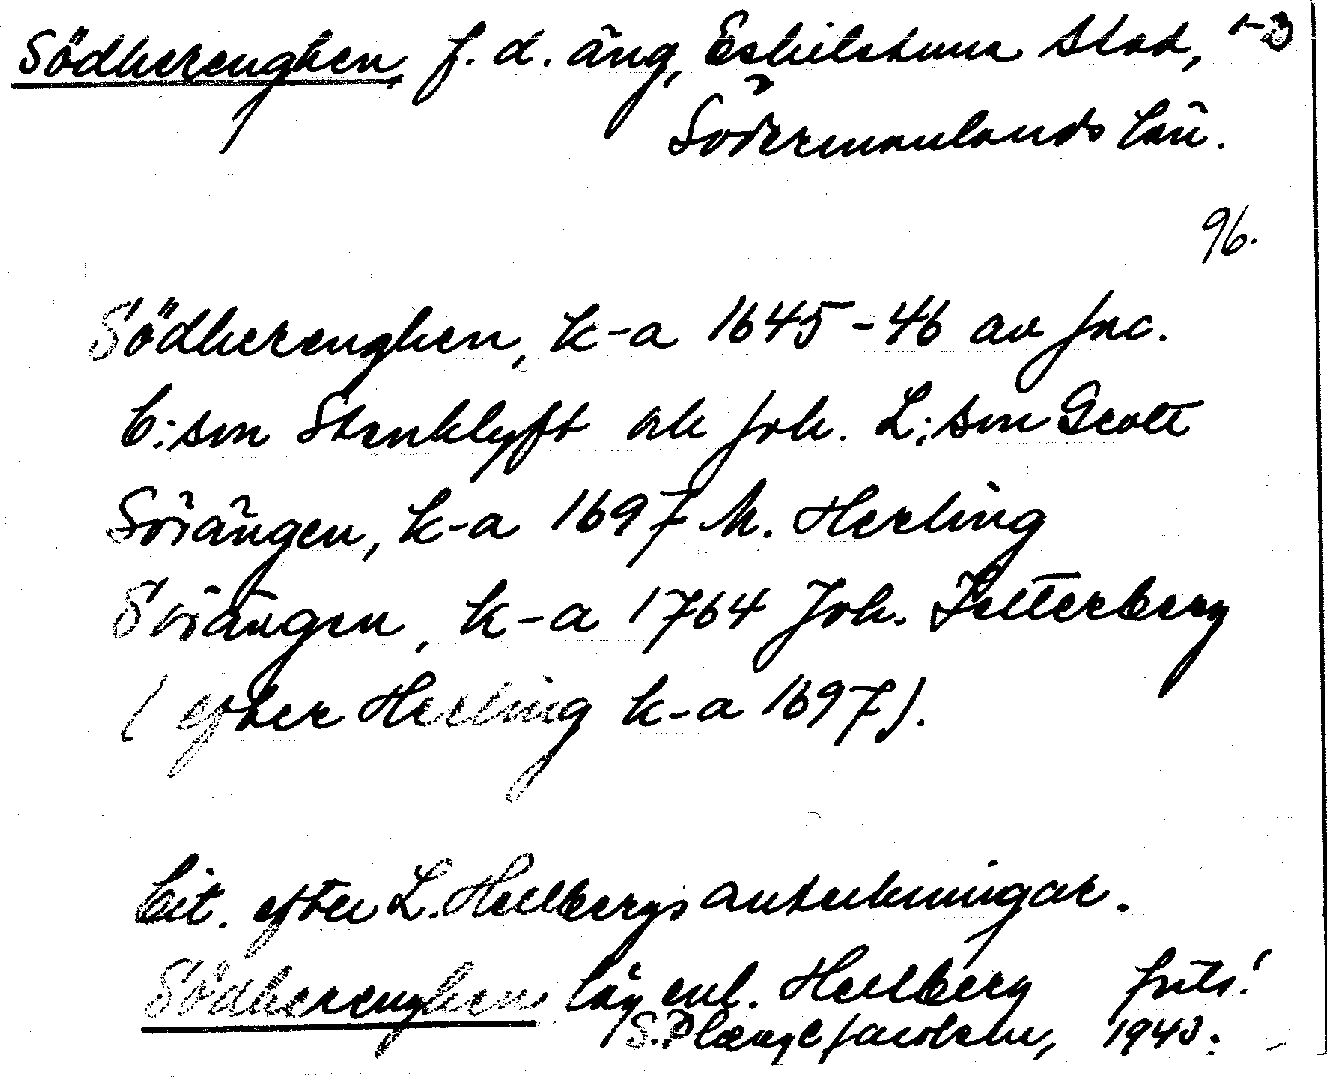 Södherenghen, f. d. äng, Eskilstuna stad, 1-3
Södermanlands län.
96.
Södherenghen, k-a 1645-46 av Jac.
C:son Stenklyft ak Joh. L:son Grott
Sörängen, k-a 1697 M. Herling
Sörängen, k-a 1764 Joh. Zetterberg
(efter Herling k-a 1697).
Cit. efter L. Hellbergs anteckningar.
Södherenghen låg enl. Hellberg forts!
S. Plænge Jacobson, 1943.